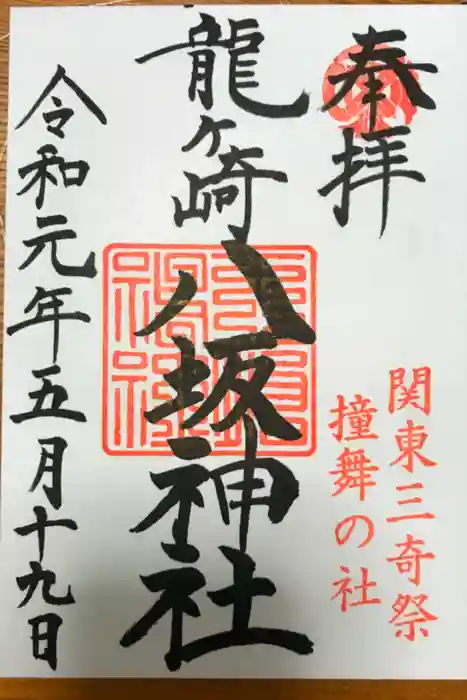 奉拝
関東三奇祭
撞舞の社
龍ヶ崎八坂神社
令和元年五月十九日